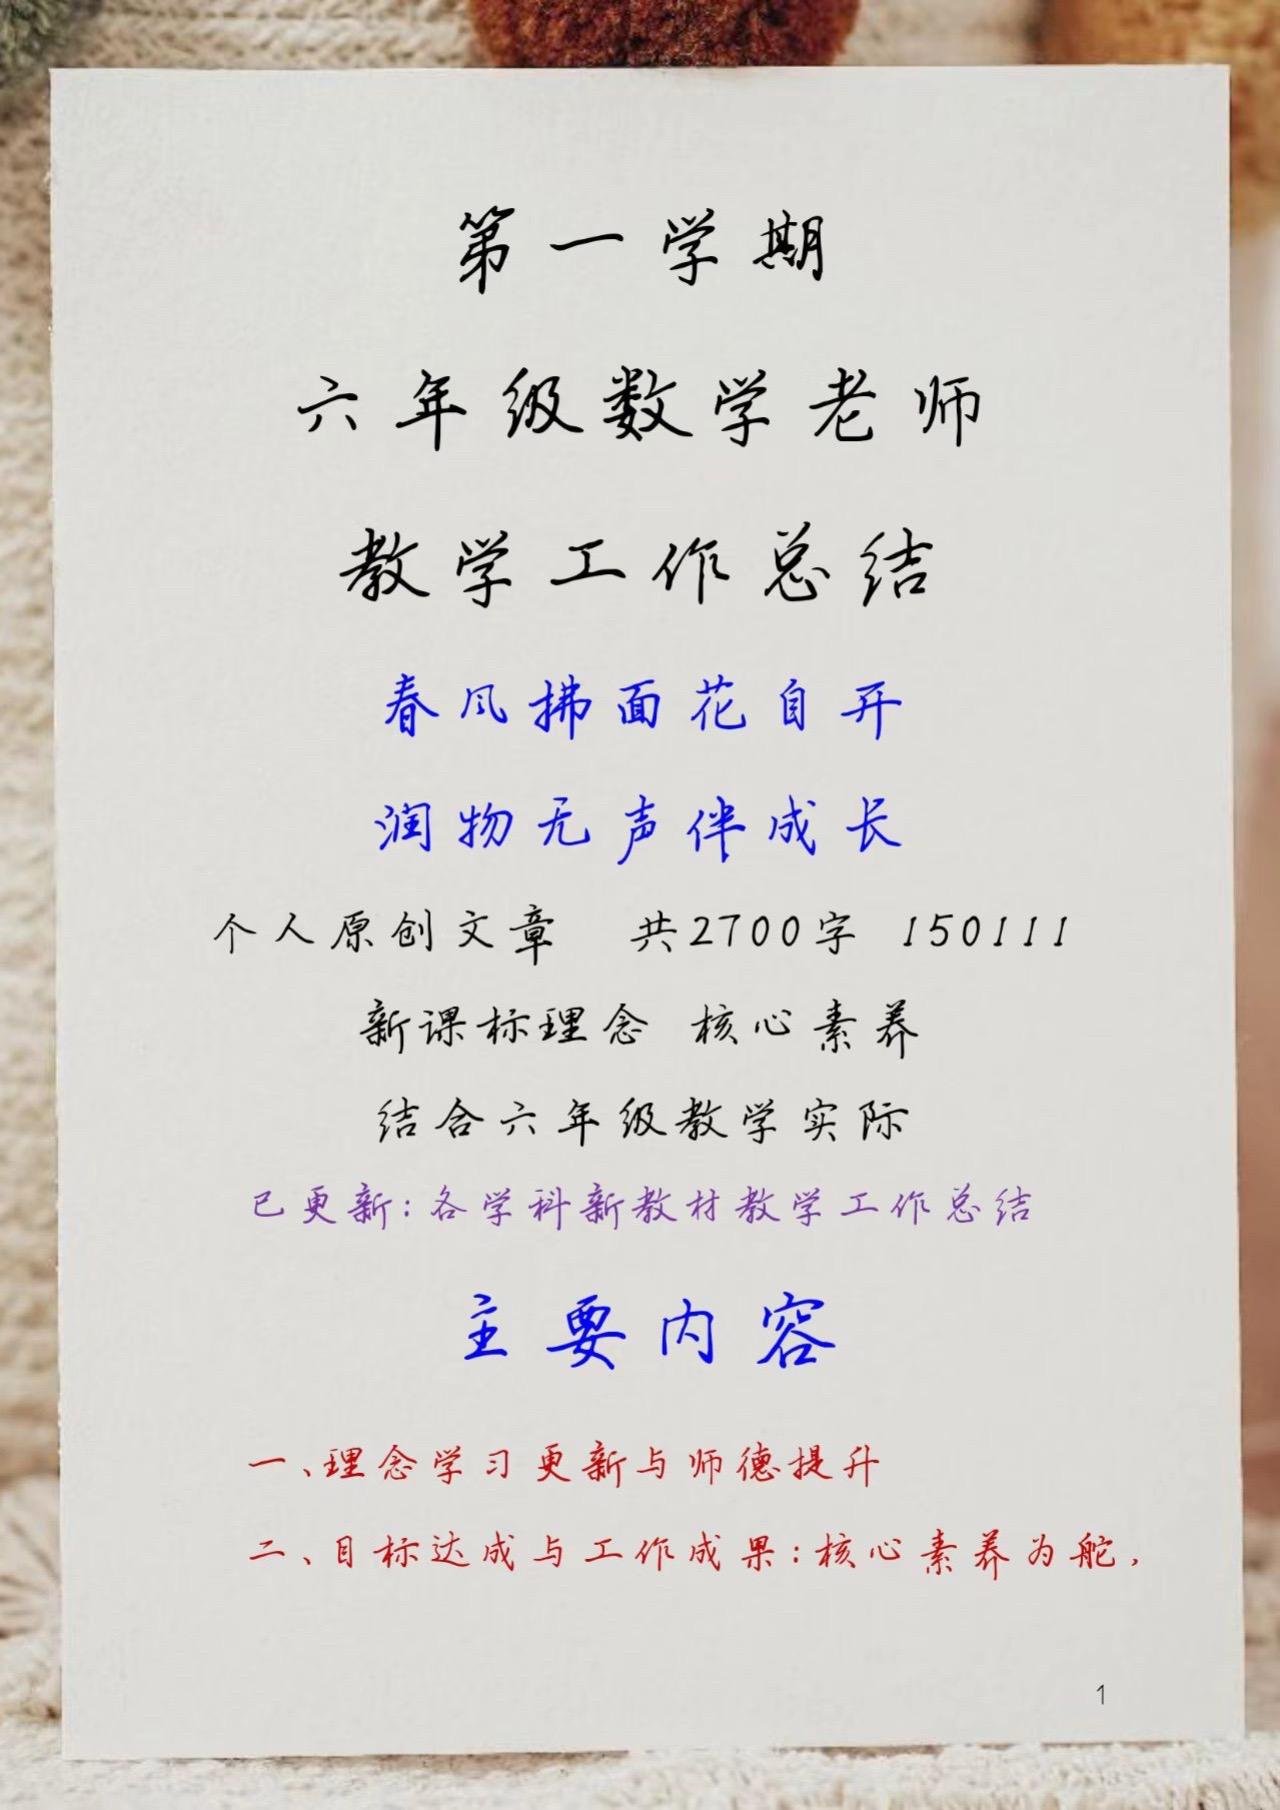 第一学期
六年级数学老师
教学工作总结
春风拂面花自开
润物无声伴成长
个人原创文章 共2700字 150111
新课标理念 核心素养
结合六年级教学实际
已更新:各学科新教材教学工作总结
主要内容
一、理念学习更新与师德提升
二、目标达成与工作成果:核心素养为舵,
1